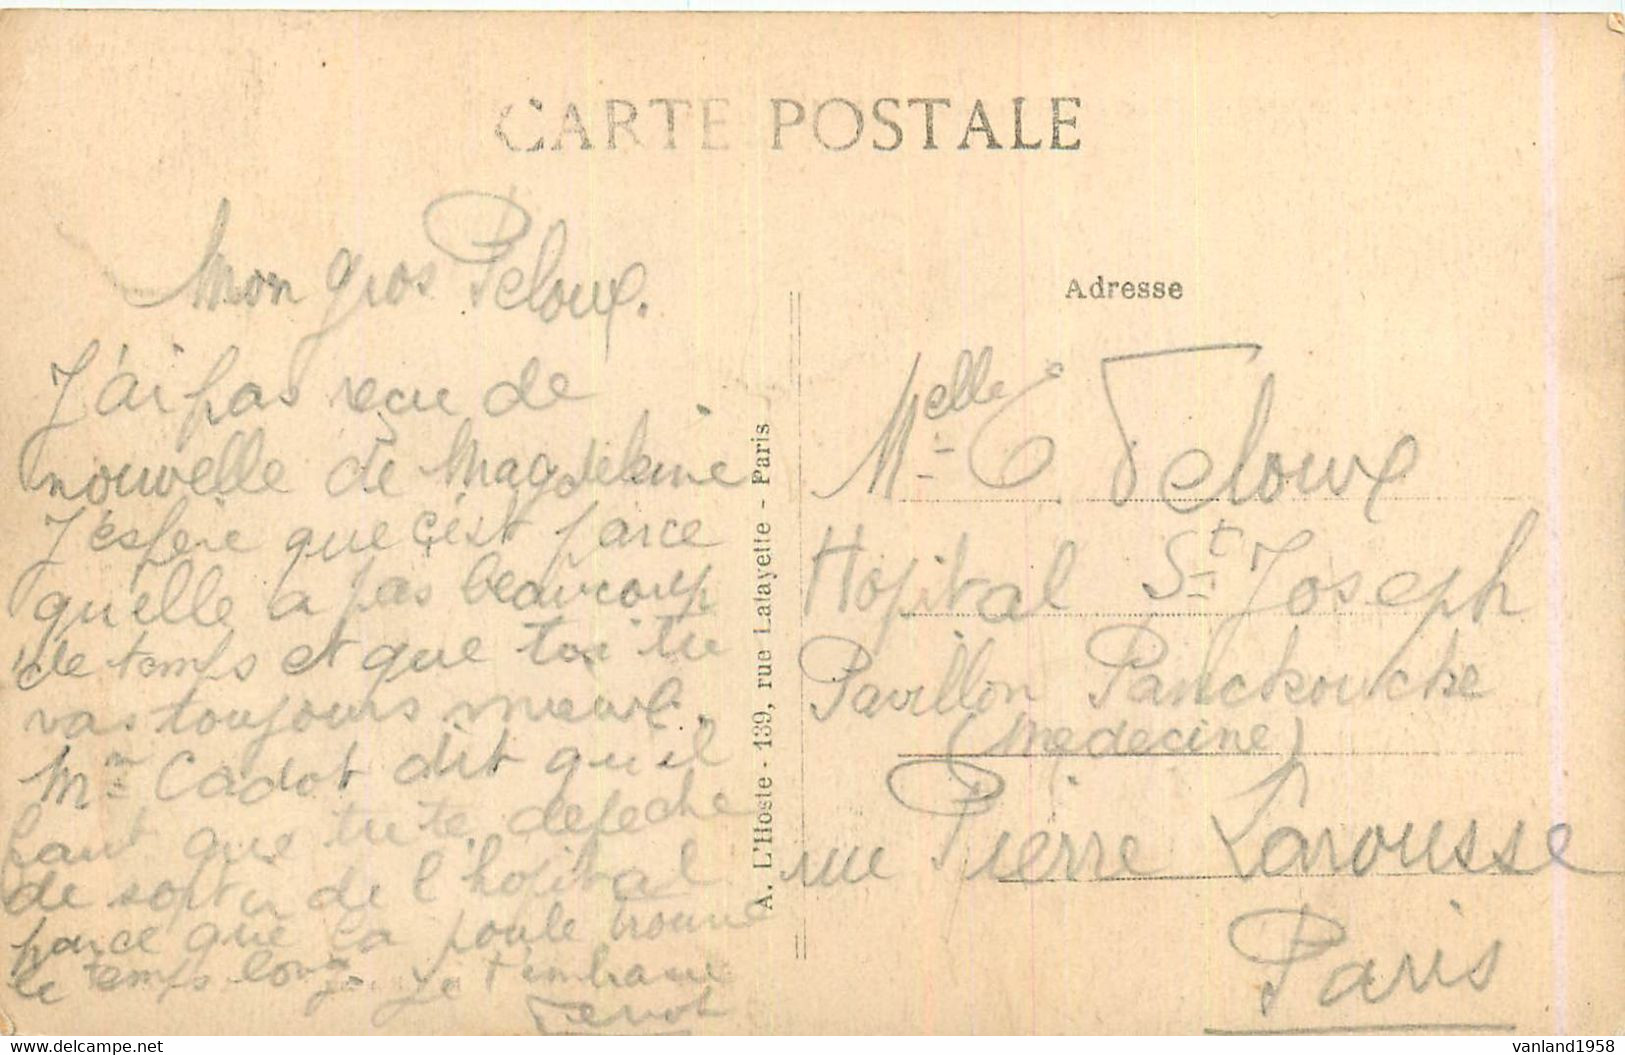 CARTE POSTALE
Mon gros Peloux.
J'ai pas reçu de
nouvelle de Magdeleine
J'espère que c'est parce
qu'elle a pas beaucoup
de temps et que toi tu
vas toujours mieux.
Mm Cadot dit qu'il
faut que tu te depeche
de sortir de l'hopital
parce que ta poule trouve
le temps long. Je t'embrasse
A. L'Hoste - 139, rue Lafayette - Paris
Adresse
Melle C Peloux
Hopital St Joseph
Pavillon Panckoucke
(Medecine)
rue Pierre Larousse
Paris
vanland1958